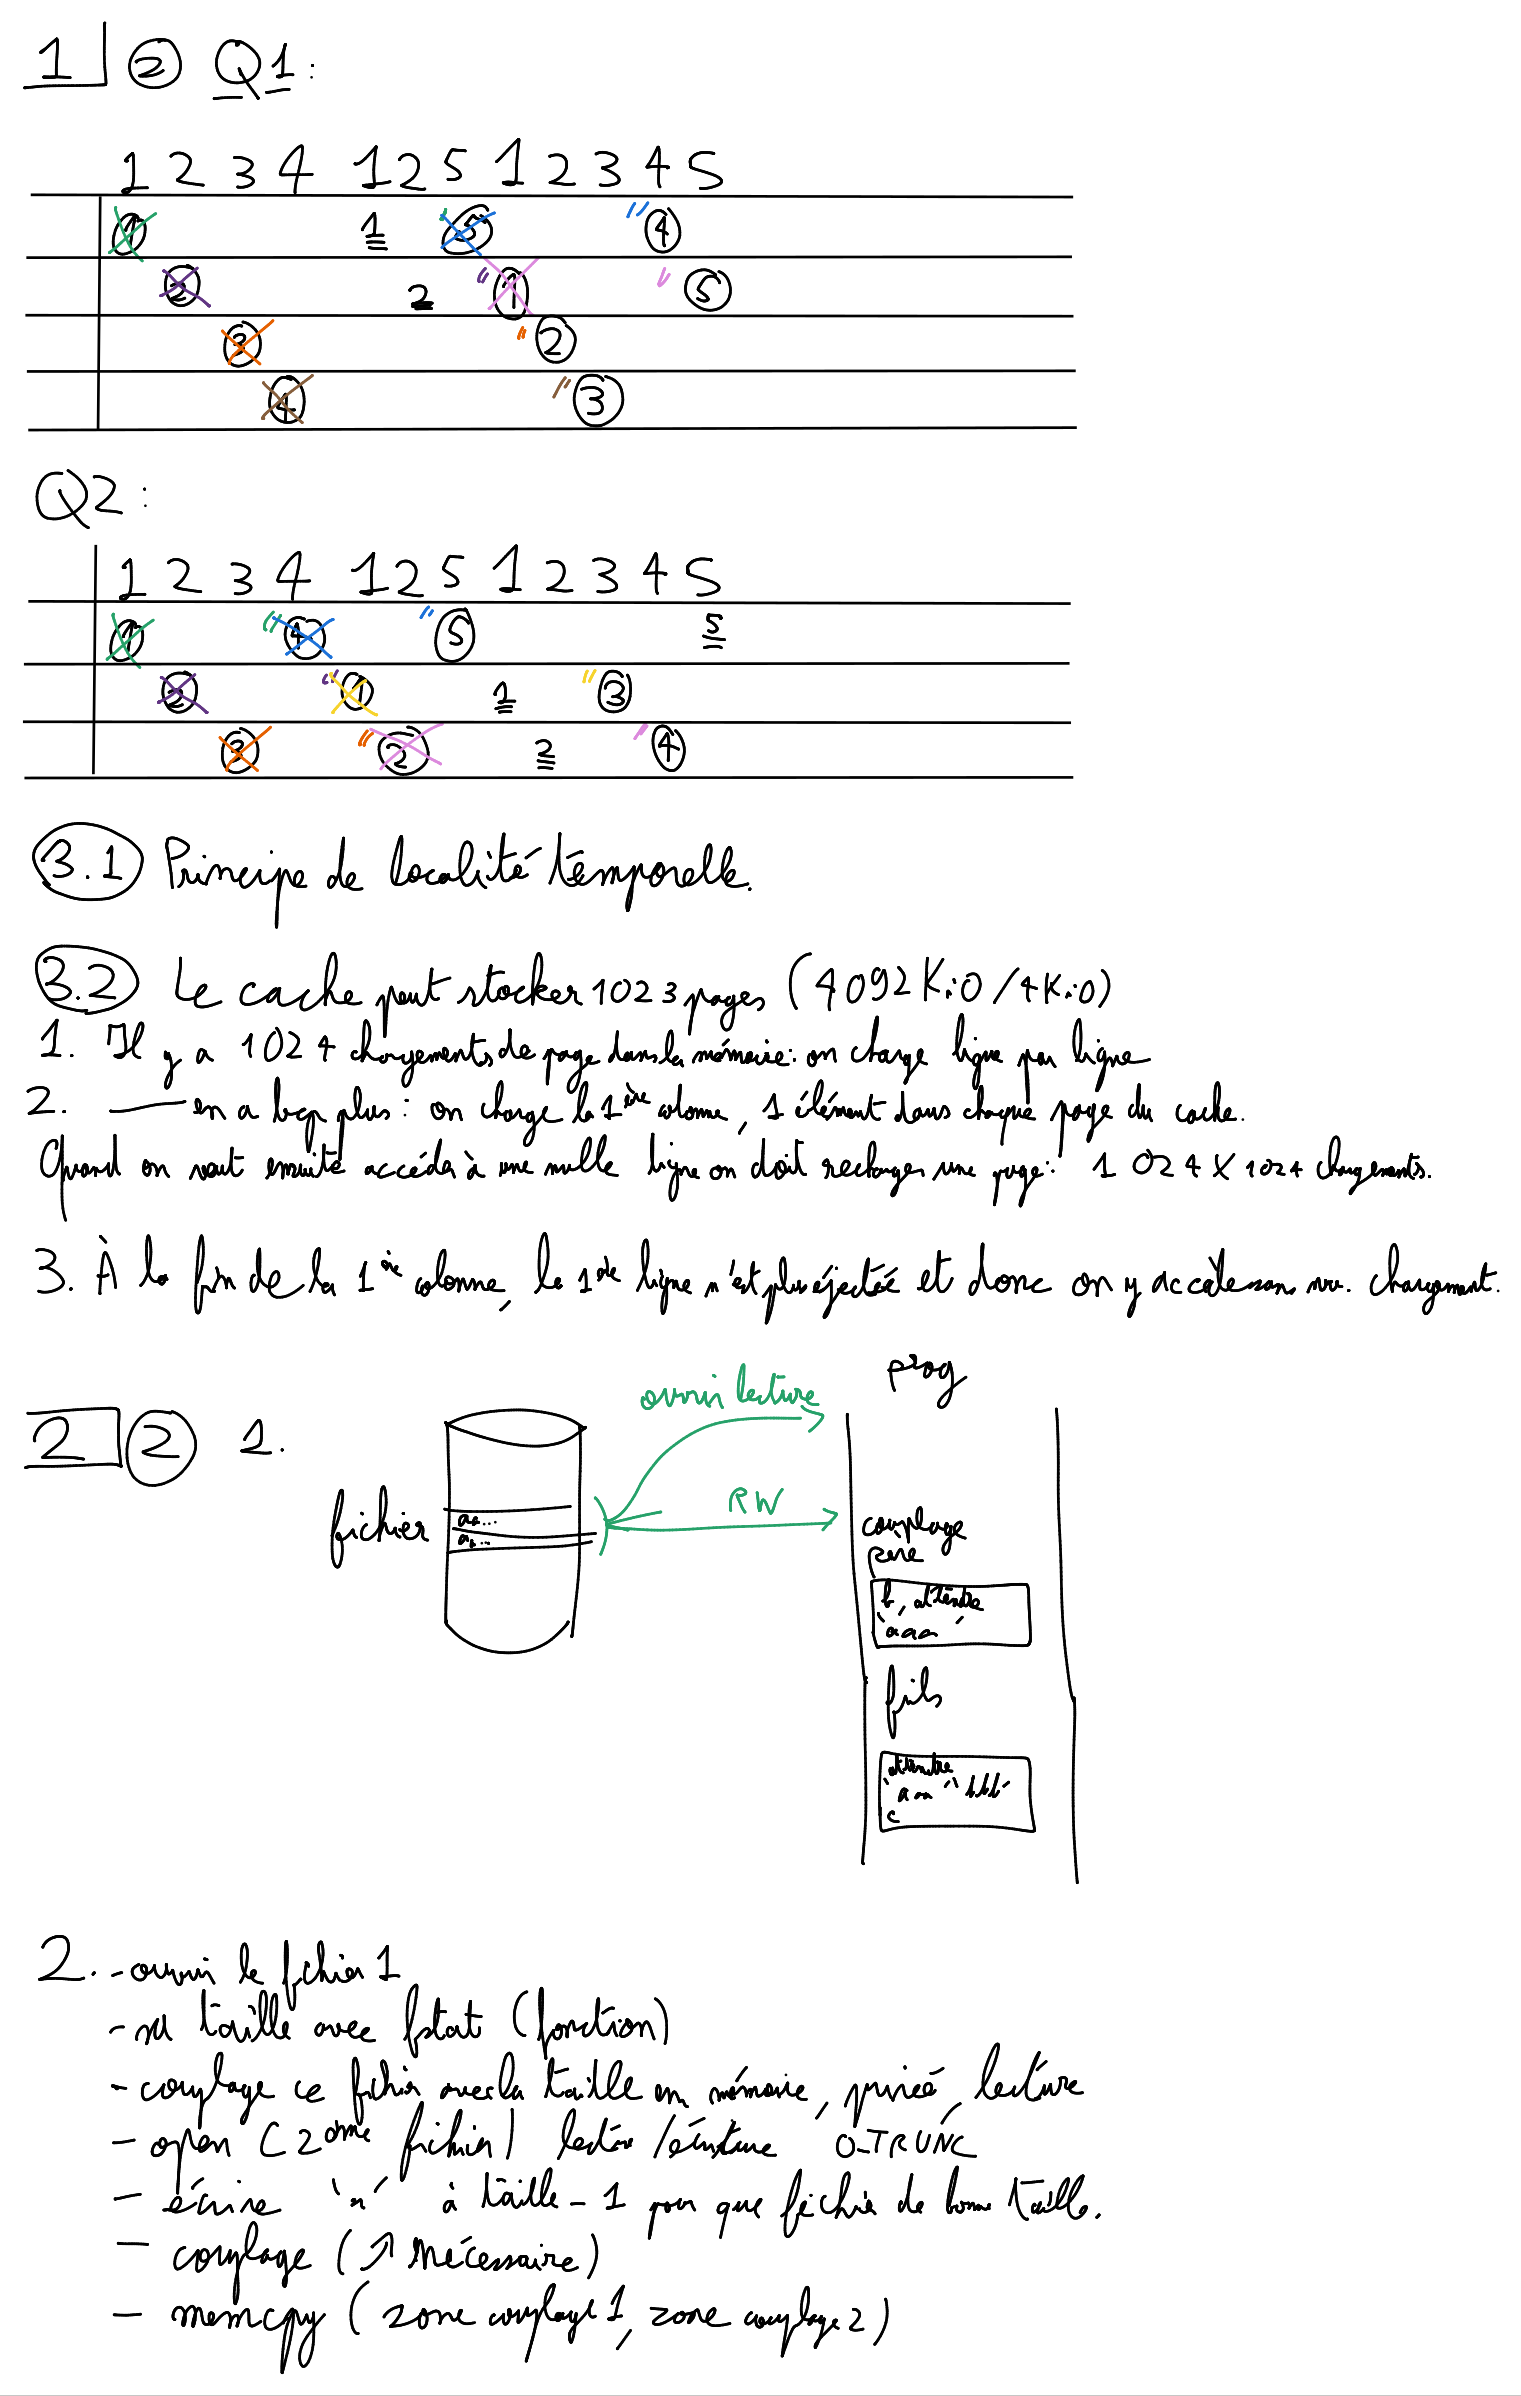 1 ② Q1:
1 2 3 4 1 2 5 1 2 3 4 5
① 1 ⑤ " ④
② 2 " ① " ⑤
③ " ②
④ " ③
Q2:
1 2 3 4 1 2 5 1 2 3 4 5
① " ④ " ⑤ 5
② " ① 1 " ③
③ " ② 2 " ④
3.1 Principe de localité temporelle.
3.2 Le cache peut stocker 1023 pages (4092Kio/4Kio)
1. Il y a 1024 chargements de page dans la mémoire: on charge ligne par ligne
2. —— en a bcp plus: on charge la 1ère colonne, 1 élément dans chaque page du cache.
Quand on veut ensuite accéder à une nvlle ligne on doit recharger une page: 1 024 X 1024 chargements.
3. À la fin de la 1ère colonne, la 1ère ligne n'est plus éjectée et donc on y accède sans nv. chargement.
prog
ouvrir lecture
2 ② 1.
RW
fichier
aa...
aa...
couplage
père
b, attendre
'aaa'
fils
attendre
'aaa' 'bbb'
c
2. - ouvrir le fichier 1
- sa taille avec fstat (fonction)
- couplage ce fichier avec la taille en mémoire, privée, lecture
- open (2ème fichier) lecture/écriture O_TRUNC
- écrire à taille - 1 pour que fichier de bonne taille.
- couplage (↗ nécessaire)
- memcpy (zone couplage 1, zone couplage 2)